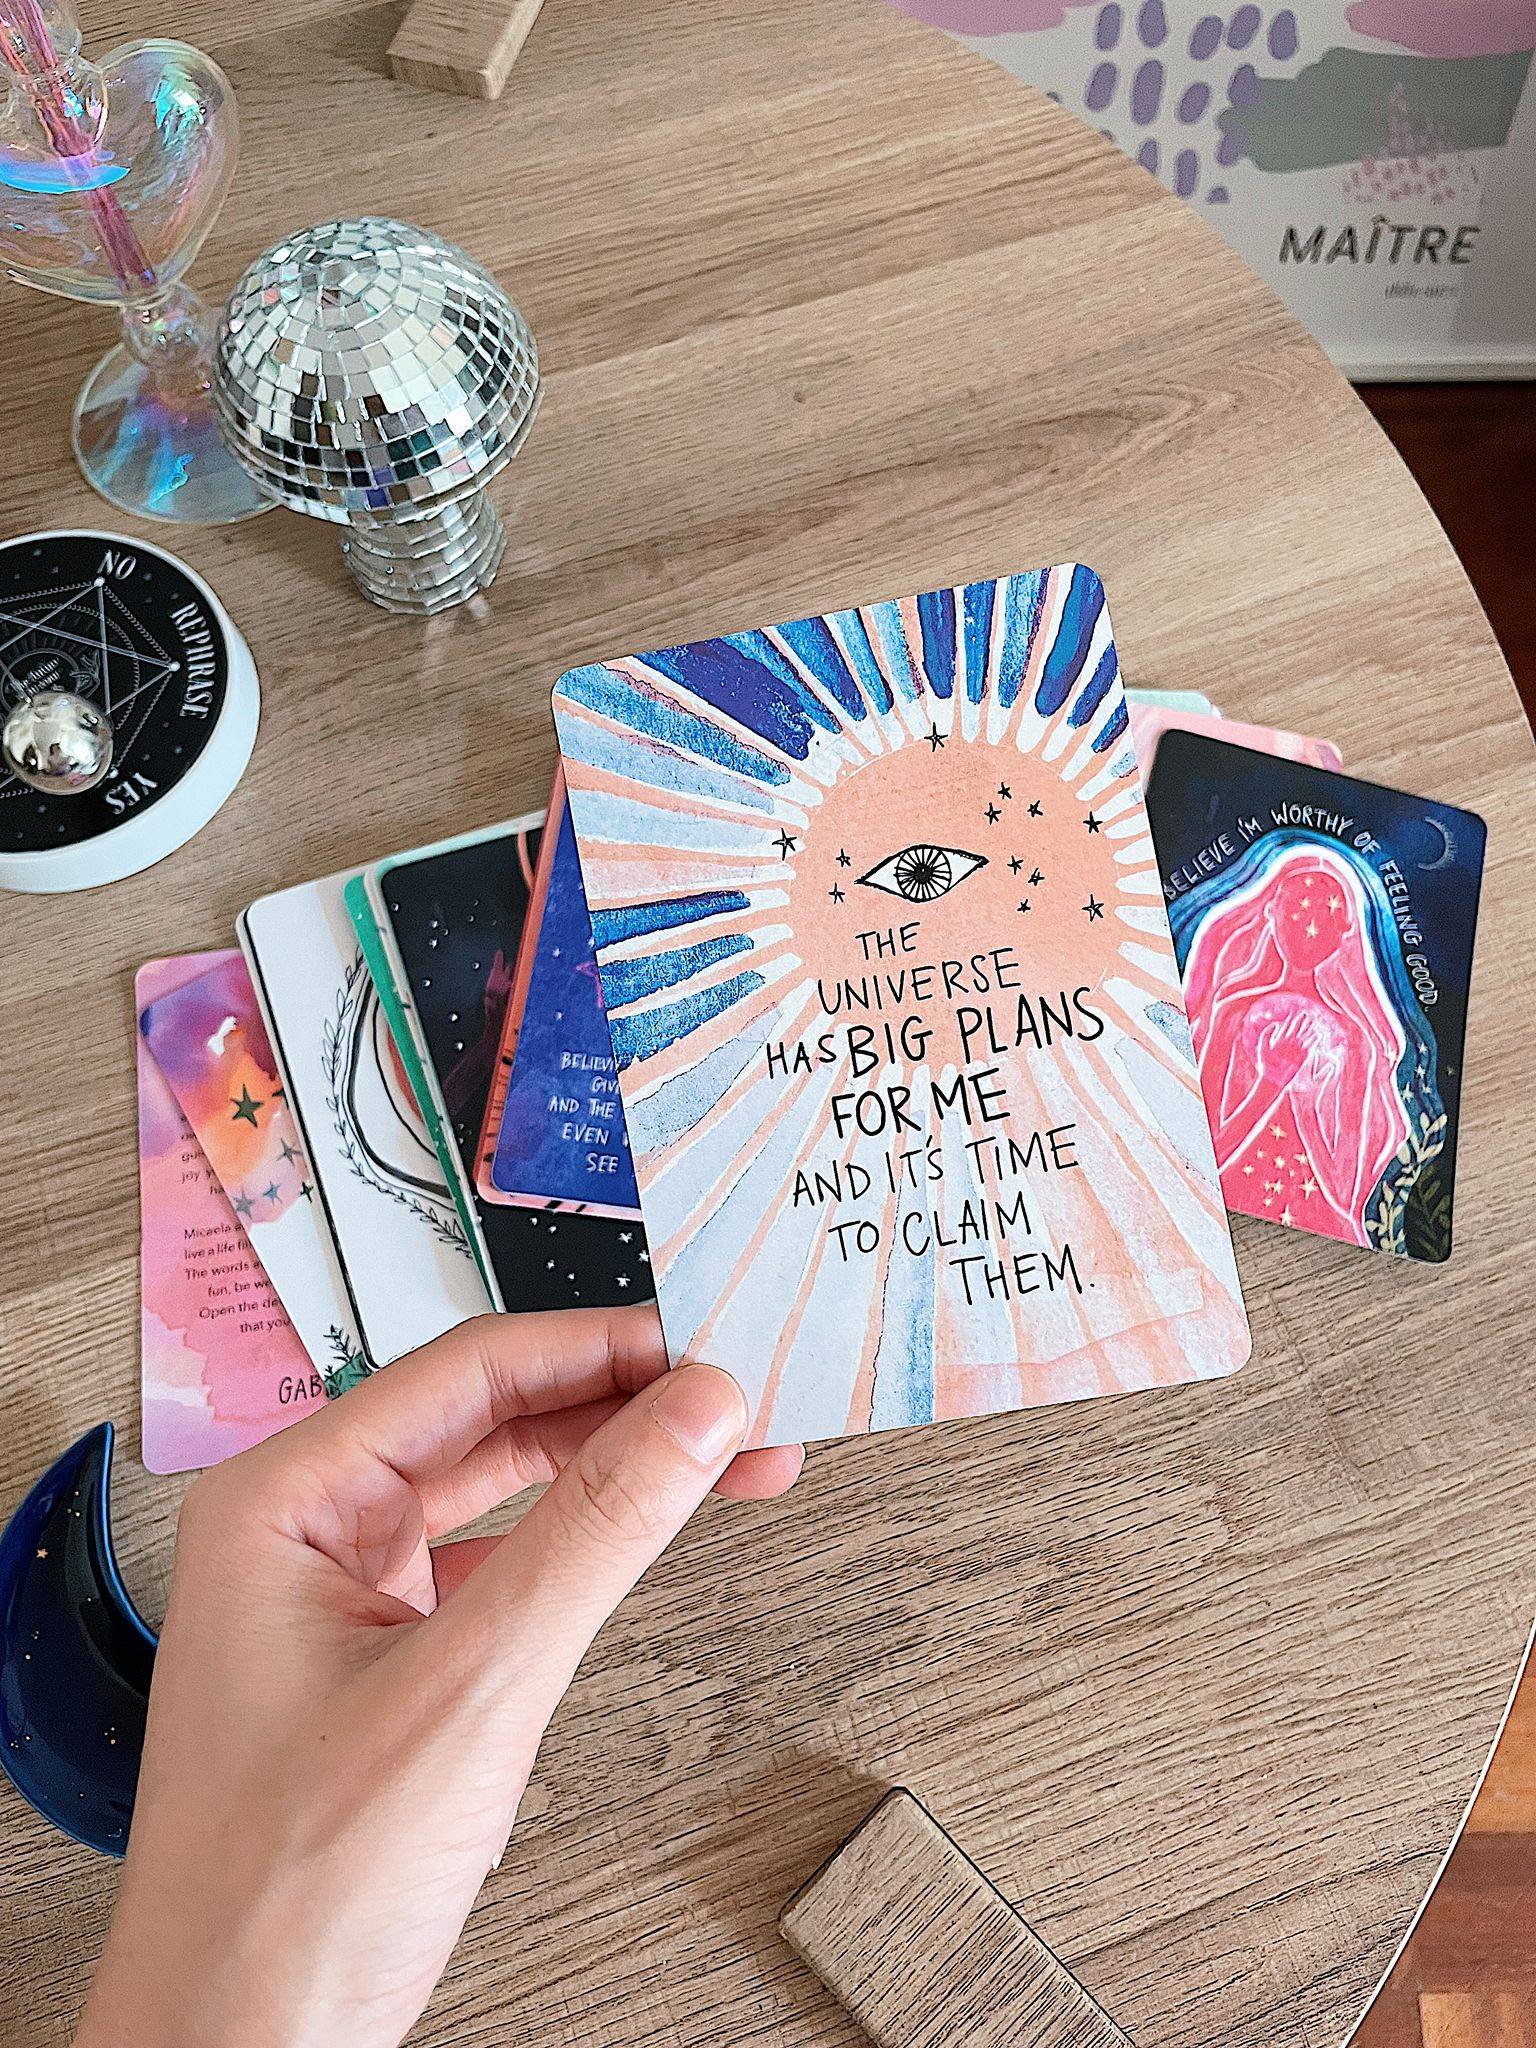 MAÎTRE
NO
REPHRASE
YES
THE
UNIVERSE
HAS BIG PLANS
FOR ME
AND IT'S TIME
TO CLAIM
THEM.
BELIEVE I'M WORTHY OF FEELING GOOD.
AND THE
EVEN
SEE
joy
Micaela
live a life
The words
fun, be
Open the
that you
GAB